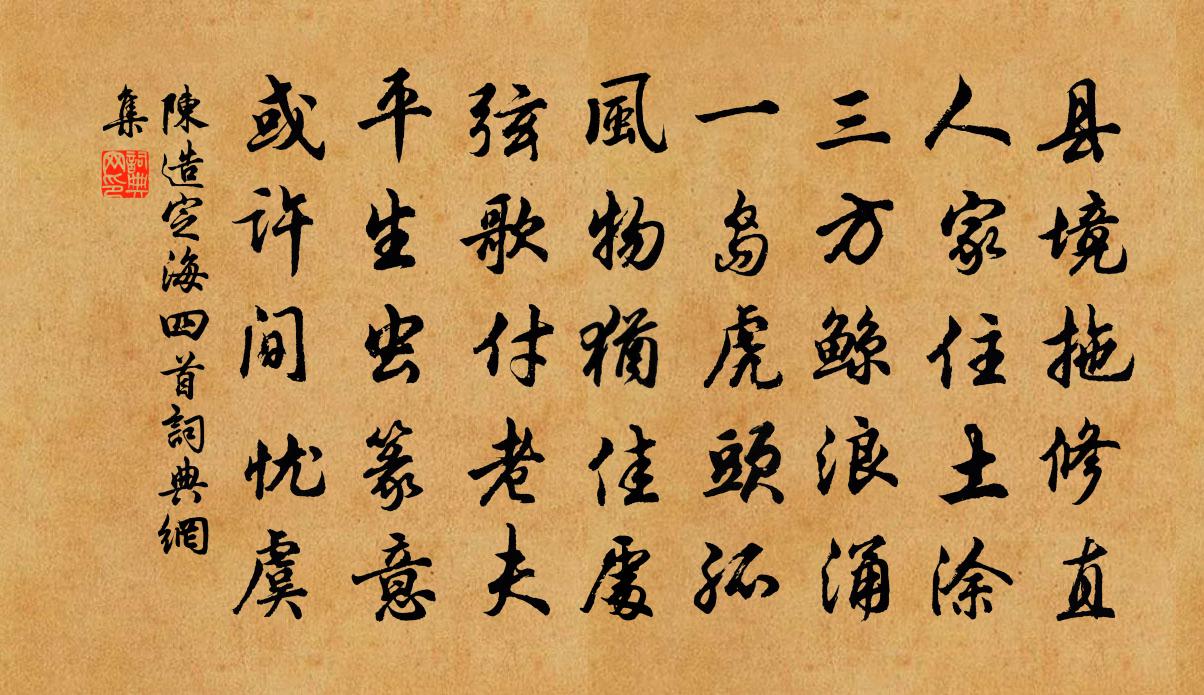 县境拖修直
人家住土涂
三方鲸浪涌
一岛虎頭孤
風物猶佳處
弦歌付老夫
平生虫篆意
或许间忧虞
陳造定海四首詞典網
集
詞典
网印